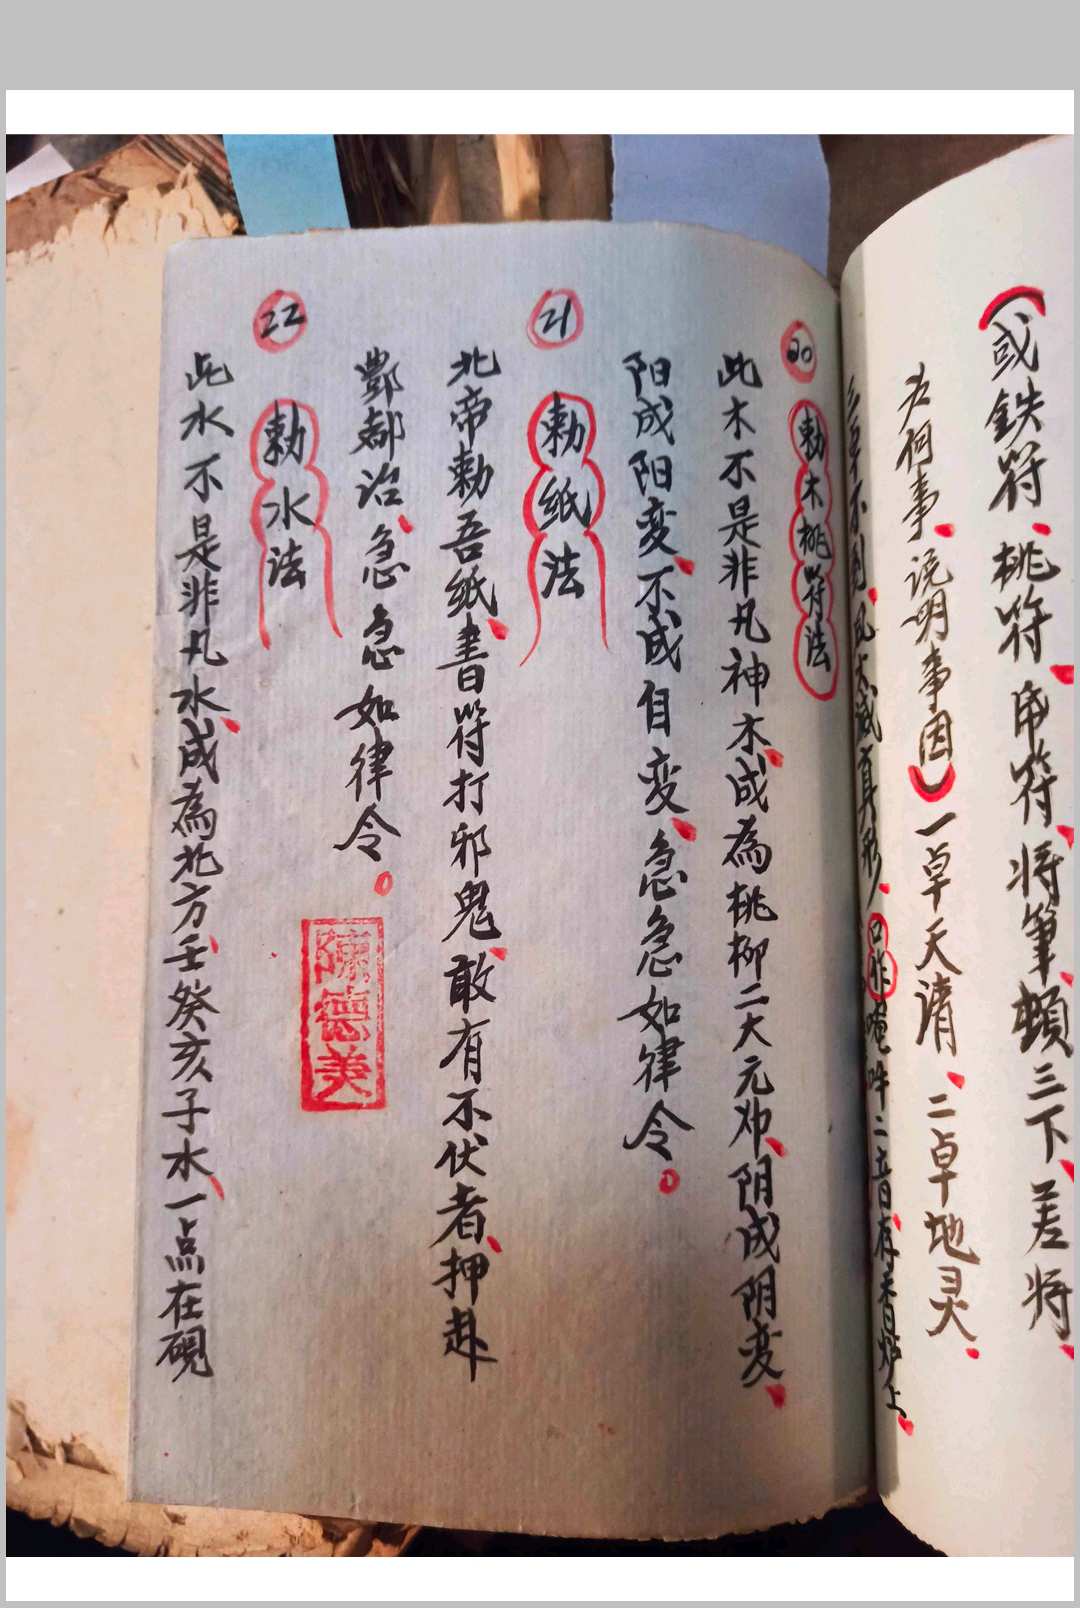 (或鉄符、桃符、帋符、将筆頓三下、差将、
为何事、说明事因)一卓天清、二卓地灵、
20
勅木桃符法
此木不是非凡神木、成為桃柳二大元帅、阴成阴变、
阳成阳变、不成自变、急急如律令。
21
勅纸法
北帝勅吾纸、書符打邪鬼、敢有不伏者、押赴
酆都治、急急如律令。
陳德美
22
勅水法
此水不是非凡水、成為北方壬癸亥子水、一点在硯